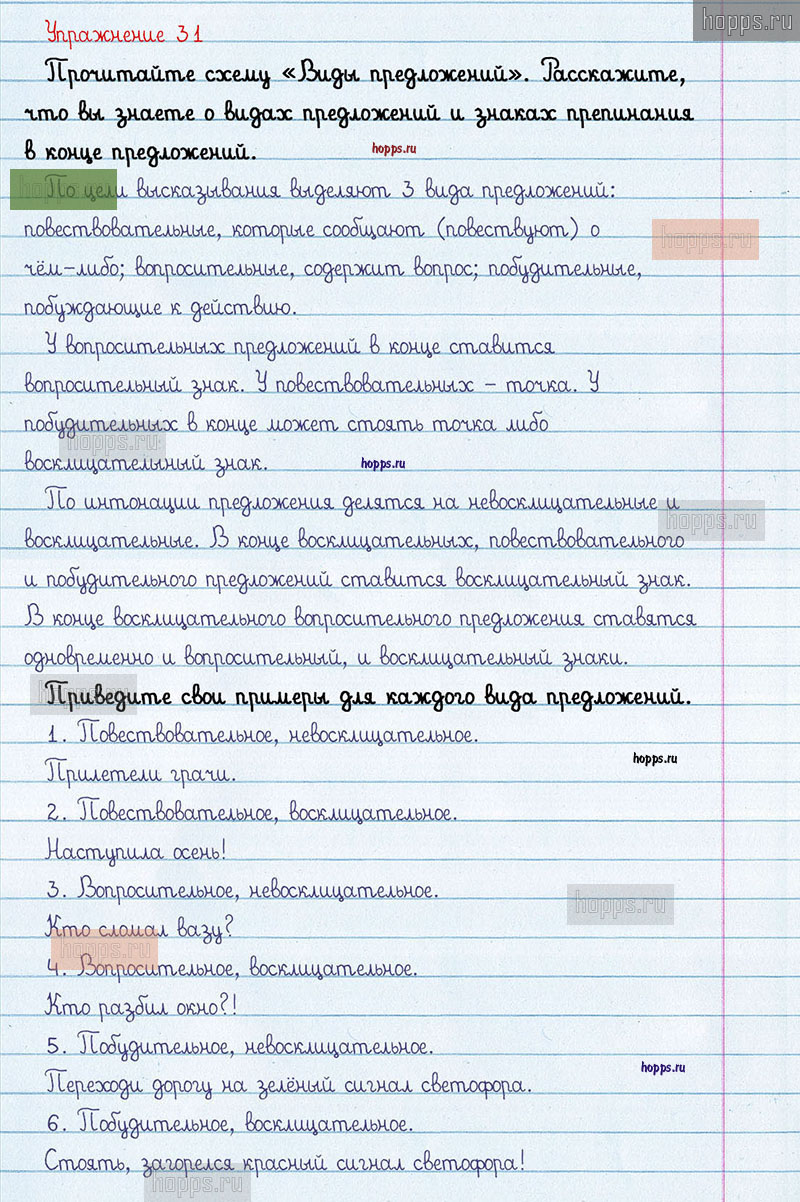 hopps.ru
Упражнение 31
Прочитайте схему «Виды предложений». Расскажите,
что вы знаете о видах предложений и знаках препинания
в конце предложений.
hopps.ru
По цели высказывания выделяют 3 вида предложений:
hopps.ru
повествовательные, которые сообщают (повествуют) о
hopps.ru
чём-либо; вопросительные, содержит вопрос; побудительные,
побуждающие к действию.
У вопросительных предложений в конце ставится
вопросительный знак. У повествовательных – точка. У
побудительных в конце может стоять точка либо
hopps.ru
восклицательный знак.
hopps.ru
По интонации предложения делятся на невосклицательные и
hopps.ru
восклицательные. В конце восклицательных, повествовательного
и побудительного предложений ставится восклицательный знак.
В конце восклицательного вопросительного предложения ставятся
одновременно и вопросительный, и восклицательный знаки.
Приведите свои примеры для каждого вида предложений.
hopps.ru
1. Повествовательное, невосклицательное.
hopps.ru
Прилетели грачи.
2. Повествовательное, восклицательное.
Наступила осень!
3. Вопросительное, невосклицательное.
hopps.ru
Кто сломал вазу?
hopps.ru
4. Вопросительное, восклицательное.
Кто разбил окно?!
5. Побудительное, невосклицательное.
hopps.ru
Переходи дорогу на зелёный сигнал светофора.
6. Побудительное, восклицательное.
Стоять, загорелся красный сигнал светофора!
hopps.ru